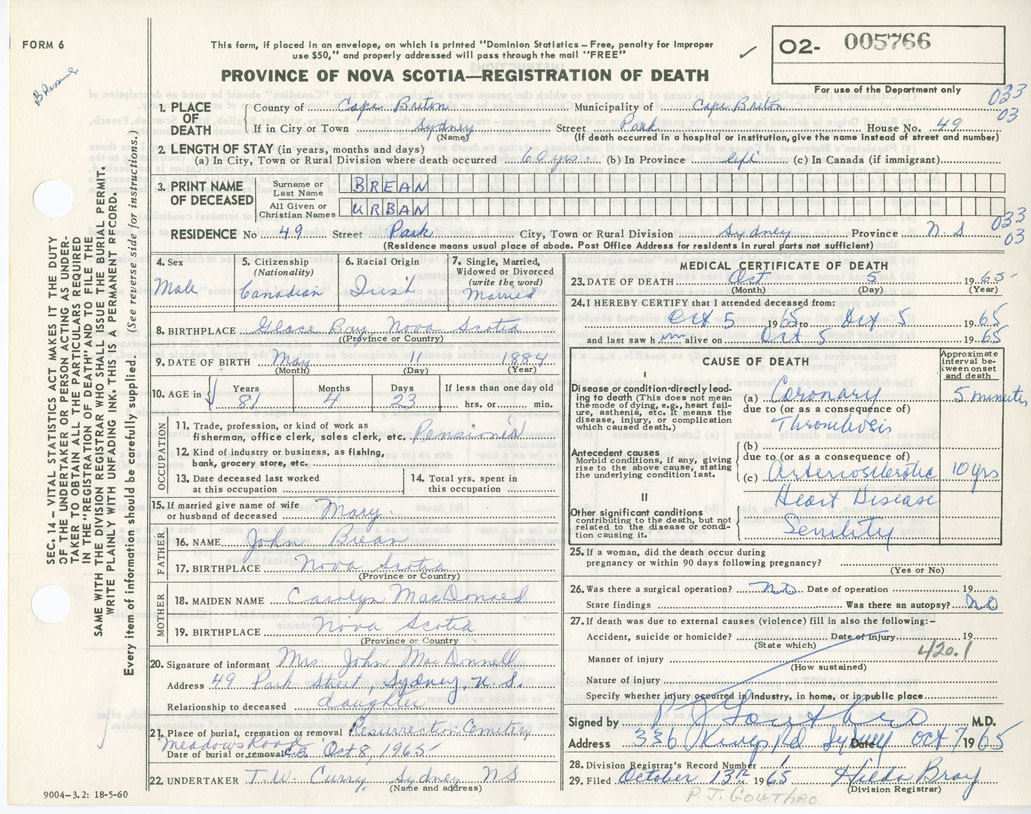 FORM 6
Brean
This form, if placed in an envelope, on which is printed "Dominion Statistics – Free, penalty for improper
use $50," and properly addressed will pass through the mail "FREE"
✓
02- 005766
PROVINCE OF NOVA SCOTIA—REGISTRATION OF DEATH
For use of the Department only
033
03
1. PLACE OF DEATH
County of Cape Breton Municipality of Cape Breton
If in City or Town Sydney Street Park House No. 49
(Name) (If death occurred in a hospital or institution, give the name instead of street and number)
2. LENGTH OF STAY (in years, months and days)
(a) In City, Town or Rural Division where death occurred 60 yrs. (b) In Province life (c) In Canada (if immigrant)
3. PRINT NAME OF DECEASED
Surname or Last Name BREAN
All Given or Christian Names URBAN
033
03
RESIDENCE No 49 Street Park City, Town or Rural Division Sydney Province N.S
(Residence means usual place of abode. Post Office Address for residents in rural parts not sufficient)
4. Sex
Male
5. Citizenship
(Nationality)
Canadian
6. Racial Origin
Irish
7. Single, Married,
Widowed or Divorced
(write the word)
Married
8. BIRTHPLACE Glace Bay, Nova Scotia
(Province or Country)
9. DATE OF BIRTH May 11 1884
(Month) (Day) (Year)
10. AGE in
Years Months Days If less than one day old
81 4 23 hrs. or min.
OCCUPATION
11. Trade, profession, or kind of work as
fisherman, office clerk, sales clerk, etc. Pensioned
12. Kind of industry or business, as fishing,
bank, grocery store, etc.
13. Date deceased last worked
at this occupation
14. Total yrs. spent in
this occupation
15. If married give name of wife
or husband of deceased Mary
FATHER
16. NAME John Brean
17. BIRTHPLACE Nova Scotia
(Province or Country)
MOTHER
18. MAIDEN NAME Carolyn MacDonald
19. BIRTHPLACE Nova Scotia
(Province or Country)
20. Signature of informant Mrs. John MacDonnell
Address 49 Park Street, Sydney, N.S.
Relationship to deceased daughter
21. Place of burial, cremation or removal Resurrection Cemetery
Meadows Road
Date of burial or removal Oct 8, 1965
22. UNDERTAKER T.W. Curry, Sydney NS
(Name and address)
9004-3.2: 18-5-60
SEC. 14— VITAL STATISTICS ACT MAKES IT THE DUTY
OF THE UNDERTAKER OR PERSON ACTING AS UNDER-
TAKER TO OBTAIN ALL THE PARTICULARS REQUIRED
IN THE "REGISTRATION OF DEATH" AND TO FILE THE
SAME WITH THE DIVISION REGISTRAR WHO SHALL ISSUE THE BURIAL PERMIT.
WRITE PLAINLY WITH UNFADING INK. THIS IS A PERMANENT RECORD.
Every item of information should be carefully supplied. (See reverse side for instructions.)
MEDICAL CERTIFICATE OF DEATH
23. DATE OF DEATH Oct 5 1965
(Month) (Day) (Year)
24. I HEREBY CERTIFY that I attended deceased from:
Oct 5 1965 to Oct 5 1965
and last saw him alive on Oct 5 1965
CAUSE OF DEATH
Approximate
interval be-
tween onset
and death
I
Disease or condition directly lead-
ing to death (This does not mean
the mode of dying, e.g., heart fail-
ure, asthenia, etc. It means the
disease, injury, or complication
which caused death.)
(a) Coronary 5 minutes
due to (or as a consequence of)
Thrombosis
Antecedent causes
Morbid conditions, if any, giving
rise to the above cause, stating
the underlying condition last.
(b)
due to (or as a consequence of)
(c) Arteriosclerotic 10 yrs
Heart Disease
II
Other significant conditions
contributing to the death, but not
related to the disease or condi-
tion causing it.
Senility
25. If a woman, did the death occur during
pregnancy or within 90 days following pregnancy?
(Yes or No)
26. Was there a surgical operation? No Date of operation 19
State findings Was there an autopsy? No
27. If death was due to external causes (violence) fill in also the following:–
Accident, suicide or homicide? Date of injury 19
(State which)
420.1
Manner of injury
(How sustained)
Nature of injury
Specify whether injury occurred in industry, in home, or in public place
Signed by P J Gouthro M.D.
Address 336 Kings Rd Sydney Date Oct 7 1965
28. Division Registrar's Record Number
29. Filed October 13th 1965 Hilda Bray
(Division Registrar)
P J. GOUTHRO